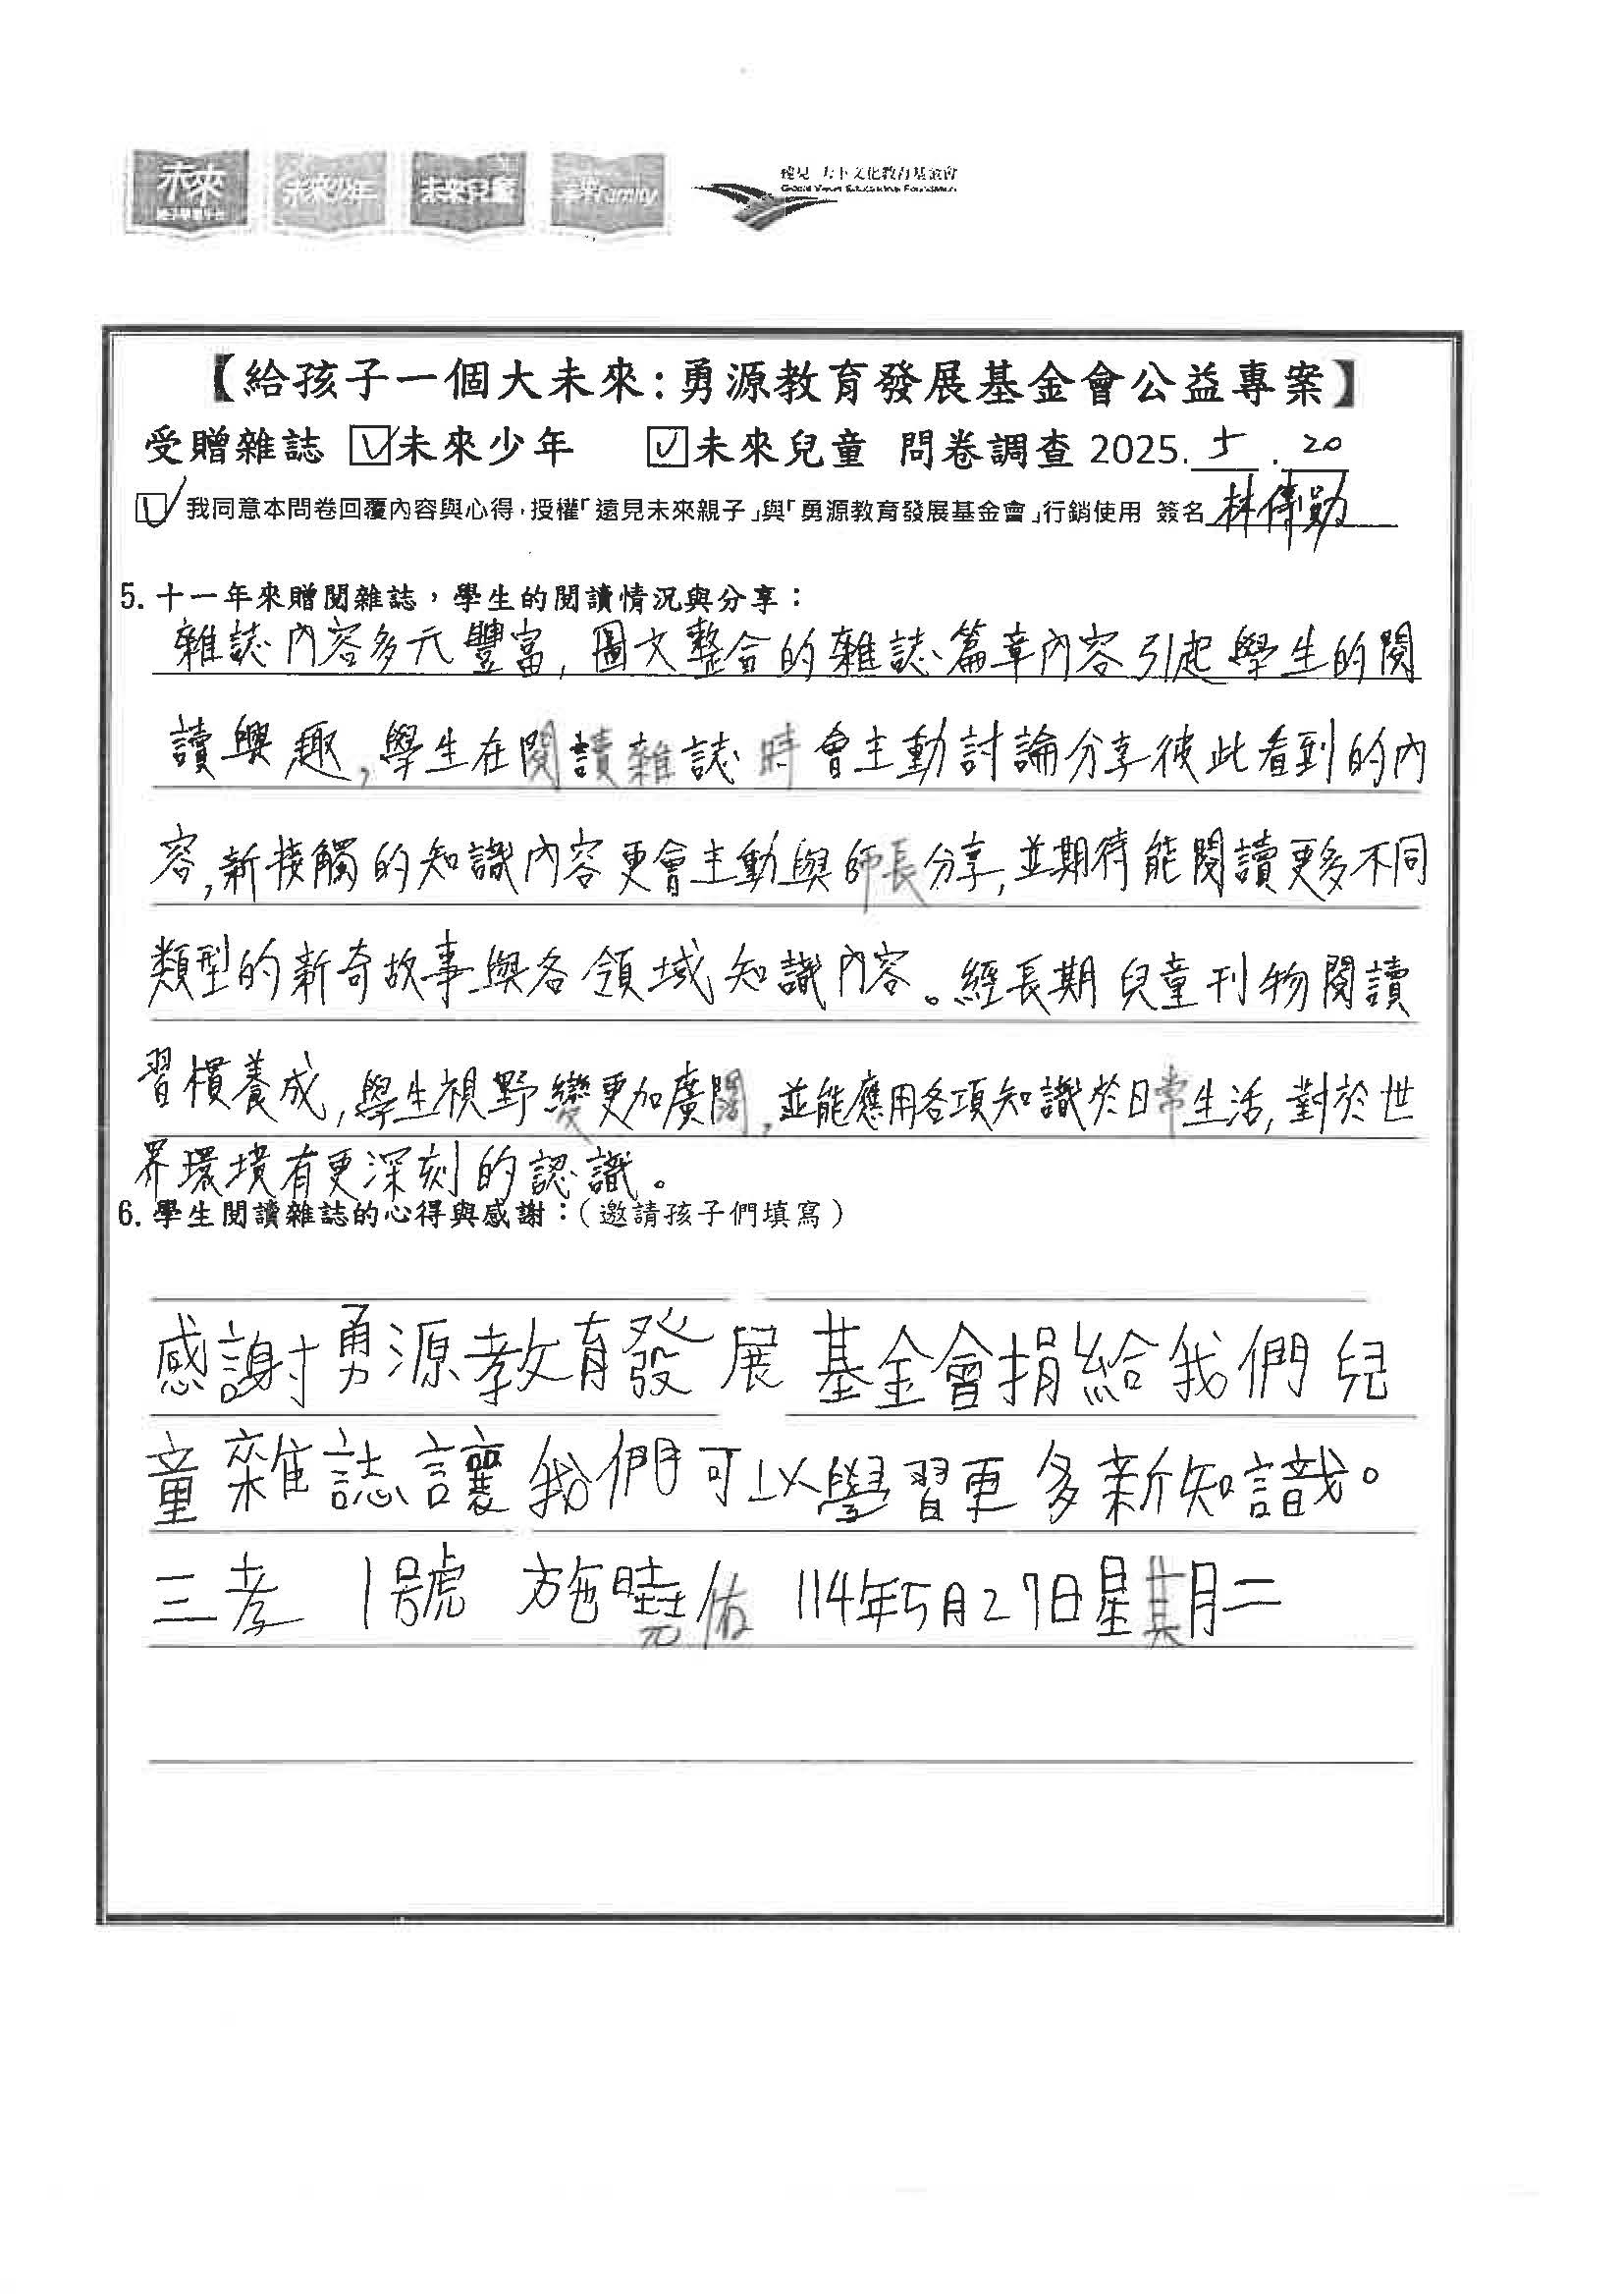 未來
親子學習平台
未來少年
未來兒童
未來Family
遠見 天下文化教育基金會
Global Views Educational Foundation
【給孩子一個大未來:勇源教育發展基金會公益專案】
受贈雜誌 ☑未來少年 ☑未來兒童 問卷調查 2025. 5 . 20
☑我同意本問卷回覆內容與心得,授權「遠見未來親子」與「勇源教育發展基金會」行銷使用 簽名 林傳勛
5. 十一年來贈閱雜誌,學生的閱讀情況與分享:
雜誌內容多元豐富,圖文整合的雜誌篇章內容引起學生的閱
讀興趣,學生在閱讀雜誌時會主動討論分享彼此看到的內
容,新接觸的知識內容更會主動與師長分享,並期待能閱讀更多不同
類型的新奇故事與各領域知識內容。經長期兒童刊物閱讀
習慣養成,學生視野變更加廣闊,並能應用各項知識於日常生活,對於世
界環境有更深刻的認識。
6. 學生閱讀雜誌的心得與感謝:(邀請孩子們填寫)
感謝勇源教育發展基金會捐給我們兒
童雜誌讓我們可以學習更多新知識。
三孝 1號 施曉佑 114年5月27日星期二